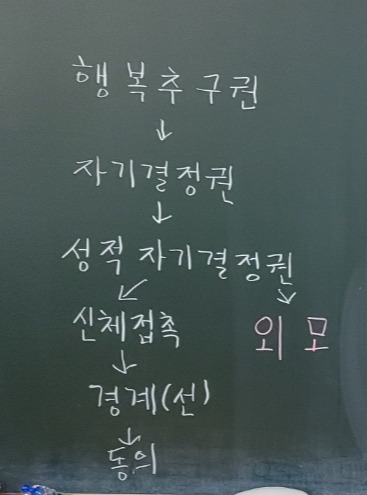 행복추구권
↓
자기결정권
↓
성적 자기결정권
↙ ↘
신체접촉 외모
↓
경계(선)
↓
동의